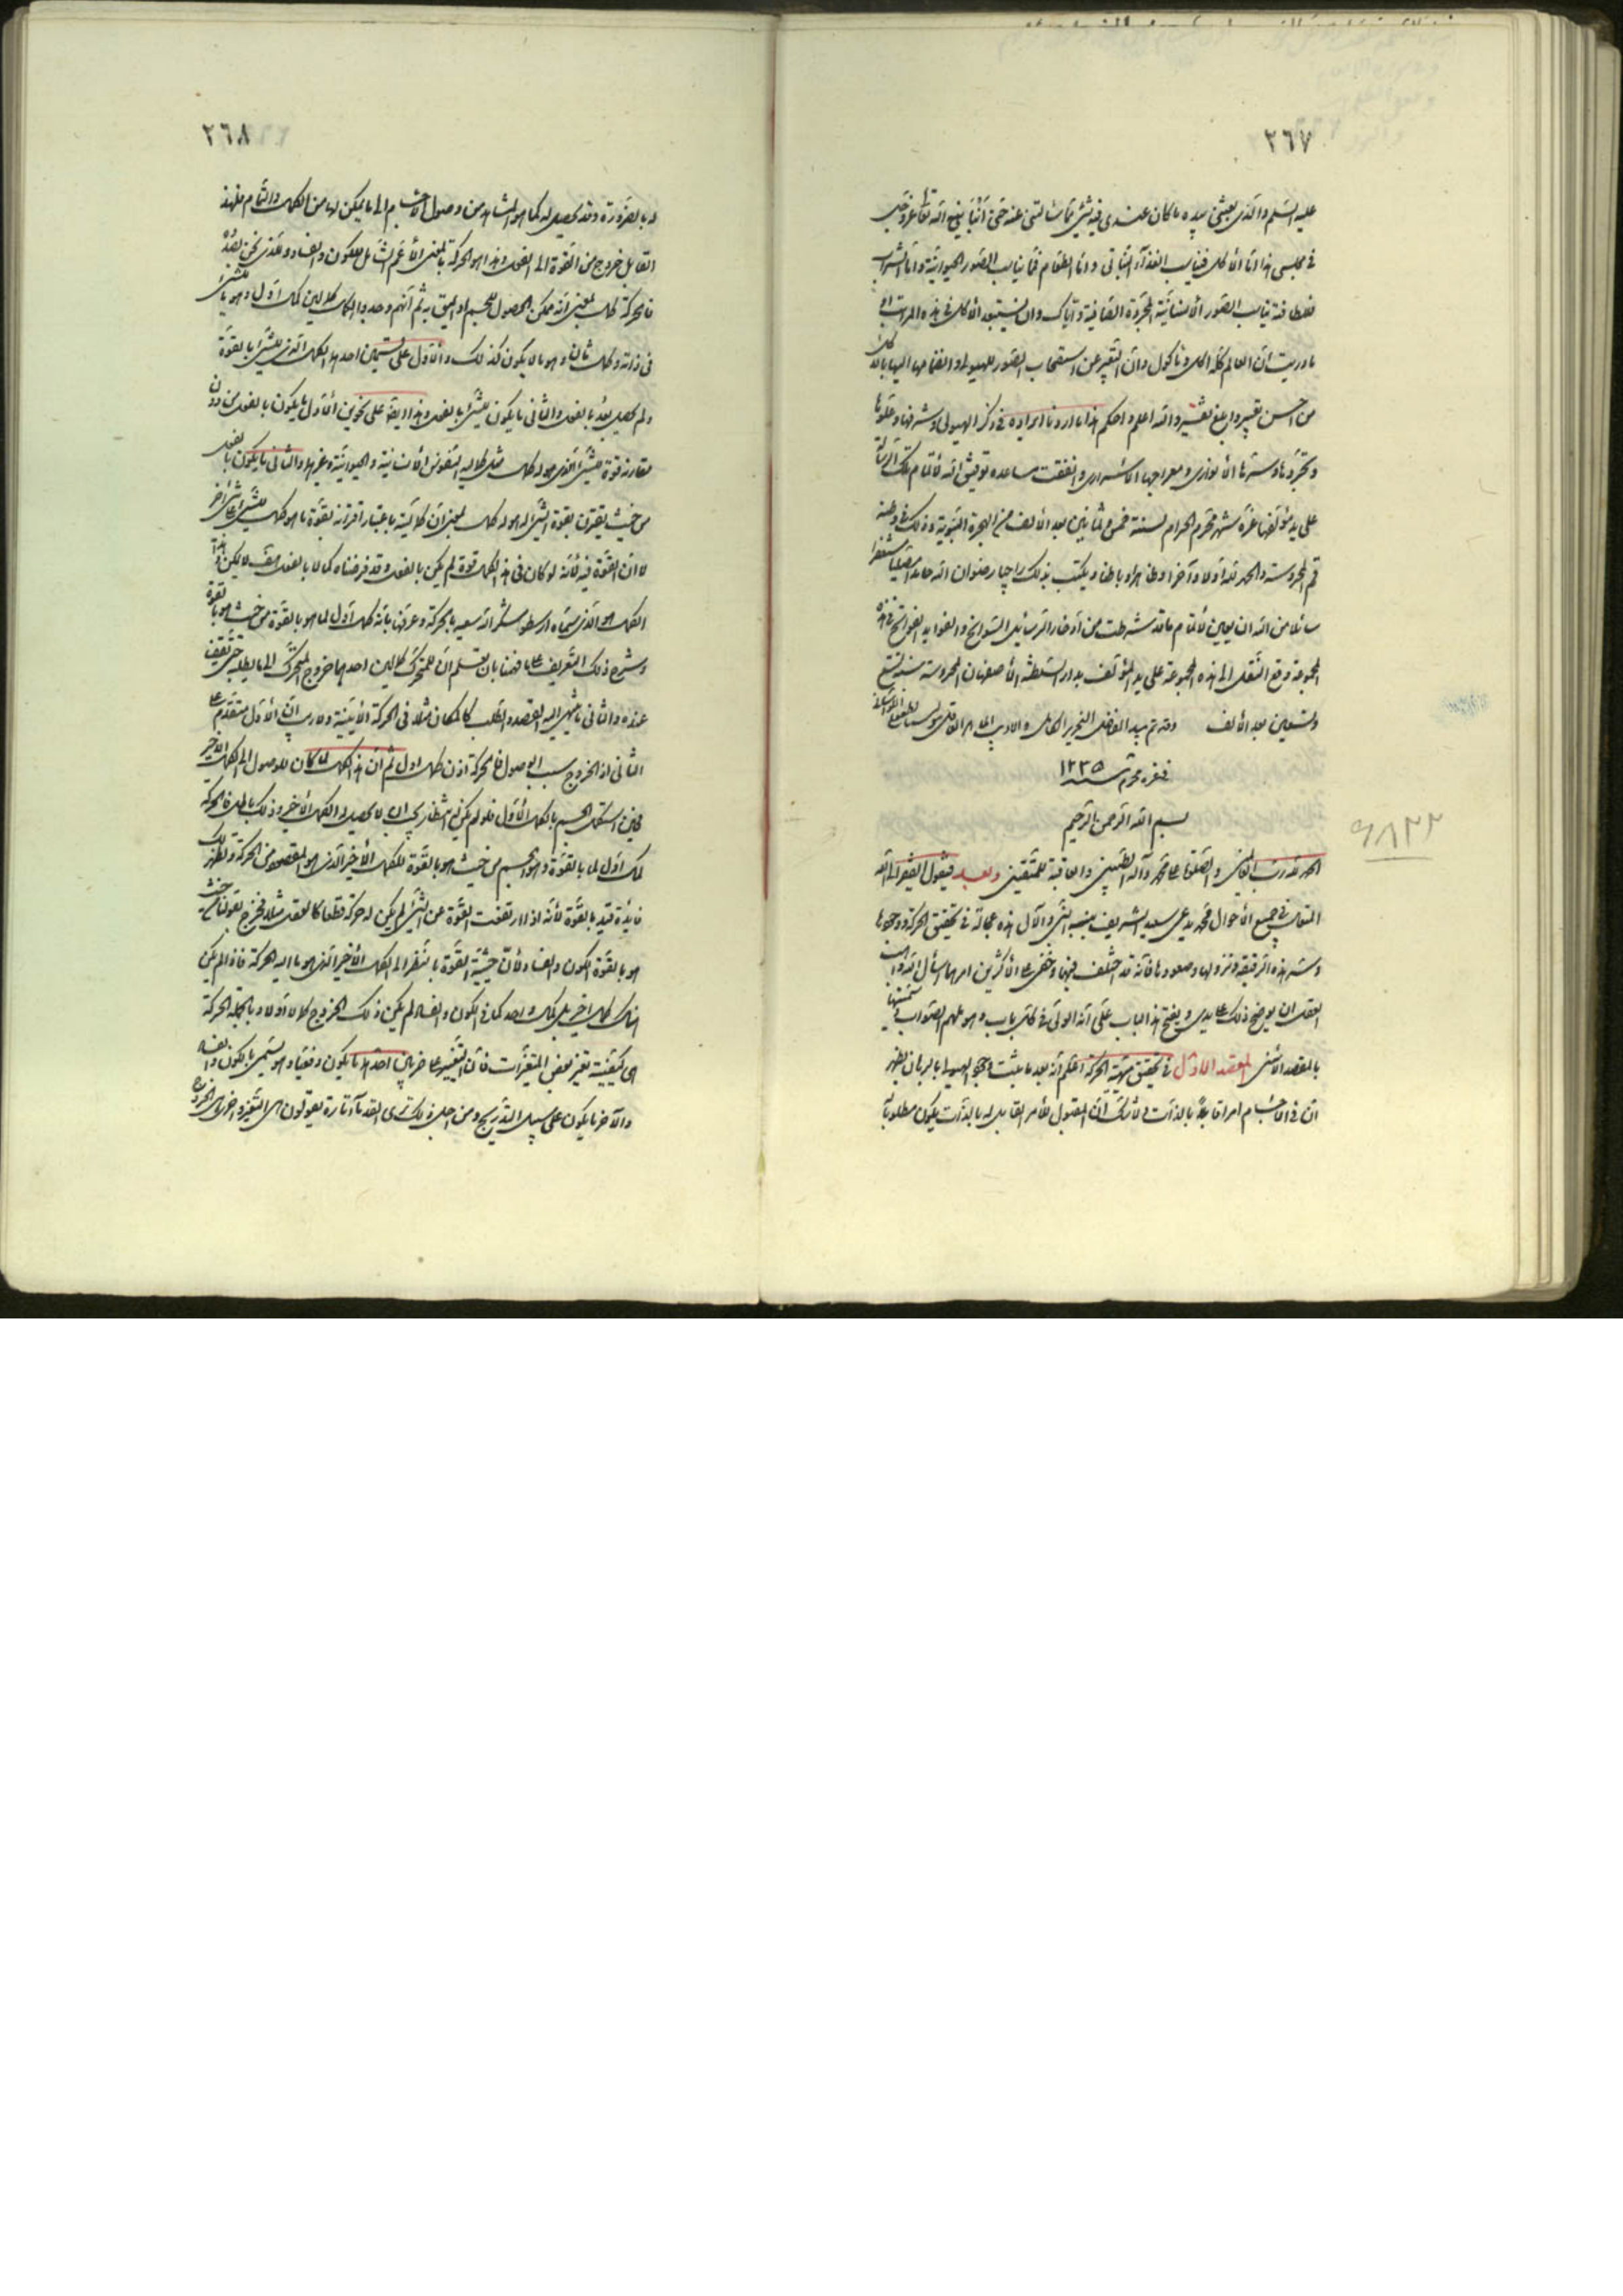 ٢٦٧
عليه السلم والذي بعثني بيده ما كان عندي فيه شيء مما سالتني عنه حتى انبأنيه الله تعالى
في مجلسي هذا اما الأكل فيناسب الغذاء النباتي واما الطعام فما يناسب الصور الحيوانية واما الشراب
فلطافته يناسب الصور الأنسانية المجردة الصافية واياك وان تستبعد الأكل في هذه المراتب
ما دريت ان العالم كله اكل و مأكول وان التعبير عن الصور للهيولى وانضمامها اليها بالاكل
من احسن تعبير وابلغ تفسير والله اعلم واحكم هذا ما اردنا ايراده في ذكر الهيولى وشرفها وعلوها
وتجردها وسترها الأنوارى ومعراجها الأسرارى واتفقت مساعدة توفيق الله لأتمام تلك الرسالة
على يد مؤلفها غرة شهر محرم الحرام لسنة خمس وثمانين بعد الألف من الهجرة النبوية وذلك في وطنه
قم المحروسة والحمد لله اولا وآخرا وظاهرا وباطنا ويكتب بذلك راجيا رضوان الله حامدا مصليا مستغفرا
سائلا من الله ان يعين لأتمام ما قد شرطت من
المجموعة وقع النقل الى هذه المجموعة على يد المؤلف بدار السلطنة الأصفهان المحروسة سنة تسع
وتسعين بعد الألف وقد تم بيد الفاضل النحرير الكامل
في غره محرم سنه ١٢٣٥
بسم الله الرحمن الرحيم
الحمد لله رب العالمين والصلوة على محمد وآله الطيبين والعاقبة للمتقين وبعد فيقول الفقير الى الله
المتعال في جميع الأحوال محمد يدعى سعيد الشريف هذه عجالة في تحقيق الحركة ووجودها
وسر هذه الرقيقة ونزولها وصعودها فانه قد اختلف فيها وخفي على الأكثرين امرها اسأل الله واهب
العقل ان يوضح ذلك على يدي ويفتح هذا الباب علي انه الولي في كل باب وهو ملهم الصواب
بالمقصد الأسنى المقصد الاول في تحقيق مهية الحركة اعلم انه بعد ما ثبت وجود الهيولى بالبرهان يظهر
ان في الأجسام امرا قابلا بالذات ولا شك ان المقبول للأمر القابل له بالذات يكون مطلوبا
٩٨٢٢
٢٦٨
له بالضرورة وقد يحصل له كما هو المشاهد من وصول الأجسام الى ما يمكن لها من الكمال والتمام فلهذا
القابل خروج من القوة الى الفعل وهذا هو الحركة بالمعنى الأعم الشامل للكون والفساد والذي نحن بصدده
فالحركة كمال بمعنى انه ممكن الحصول للجسم او يليق به ثم انهم وجدوا الكمال كمالين كمال اول وهو ما للشيء
في ذاته وكمال ثان وهو ما لا يكون كذلك والأول على قسمين احدهما الكمال الذي للشيء بالقوة
ولم يحصل بعد بالفعل والثاني ما يكون للشيء بالفعل وهذا ايضا على نحوين الأول ما يكون بالفعل من دون
مقارنة قوة للشيء الذي هو له كمال مثل كمالية النفوس الأنسانية والحيوانية وغيرها والثاني ما يكون بالفعل
من حيث يقترن بقوة الشيء الذي هو له كمال بمعنى ان كماليته باعتبار اقترانه بقوة ما هو كمال للشيء
لا ان القوة فيه لأنه لو كان في هذا الكمال قوة لم يكن بالفعل وقد فرضناه كمالا بالفعل هف لا يكن
الكمال هو الذي سماه ارسطو شكر الله سعيه بالحركة وعرفها بانه كمال اول لما هو بالقوة من حيث هو بالقوة
وشرح ذلك التعريف على ما فهمنا بان تعلم ان للمتحرك كمالين احدهما خروج المتحرك الى ما يطلبه
عنده والثاني ما ينتهي اليه القصد والطلب كالمكان مثلا في الحركة الأينية ولا ريب ان الأول متقدم على
الثاني اذ الخروج سبب الوصول فالحركة اذن كمال اول ثم ان هذا الكمال لما كان للوصول الى الكمال الأخير
فحين استكمل الجسم بالكمال الأول فلو لم يكن له لا يحصل له الكمال الأخير وذلك باطل فالحركة
كمال اول لما بالقوة وهو الجسم من حيث هو بالقوة للكمال الأخير الذي هو المقصود من الحركة وتظهر لك
فايدة قيد بالقوة لأنه اذا ارتفعت القوة عن الشيء لم يكن له حركة قطعا كالعقل مثلا فخرج بقولنا من حيث
هو بالقوة الكون والفساد لأن حيثية القوة بالنظر الى الكمال الأخير الذي هو ما اليه الحركة فاذا لم يكن
هناك كمال اخير بل كمال واحد كما في الكون والفساد لم يكن ذلك الخروج كمالا اولا وبالجملة الحركة
هي كيفية تغير بعض المتغيرات فان التغيير على ضربين احدهما يكون دفعيا وهو يسمى بالكون والفساد
والآخر ما يكون على سبيل التدريج ومن اجل ذلك ترى القدماء تارة يقولون هي التغير واخرى هي الخروج